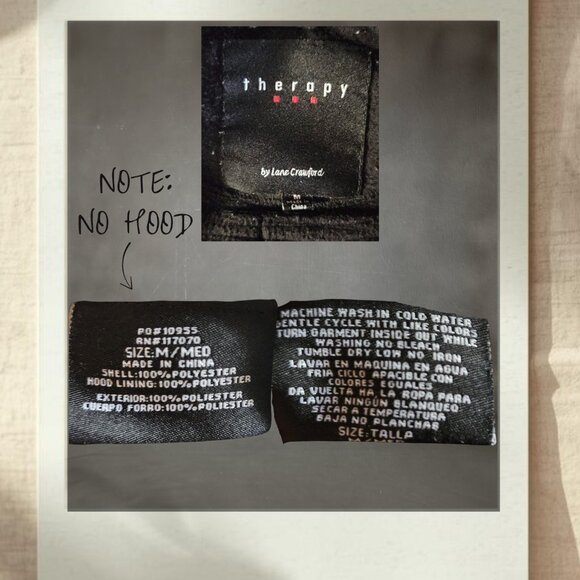 therapy
by Lane Crawford
M
China
NOTE:
NO HOOD
PO#10955
RN#117070
SIZE:M/MED
MADE IN CHINA
SHELL:100%POLYESTER
HOOD LINING:100%POLYESTER
EXTERIOR:100%POLIESTER
CUERPO FORRO:100%POLIESTER
MACHINE WASH IN COLD WATER
GENTLE CYCLE WITH LIKE COLORS
TURN GARMENT INSIDE OUT WHILE
WASHING NO BLEACH
TUMBLE DRY LOW NO IRON
LAVAR EN MAQUINA EN AGUA
FRIA CICLO APACIBLE CON
COLORES EGUALES
DA VUELTA HA LA ROPA PARA
LAVAR NINGÚN BLANQUEO
SECAR A TEMPERATURA
BAJA NO PLANCHAR
SIZE:TALLA